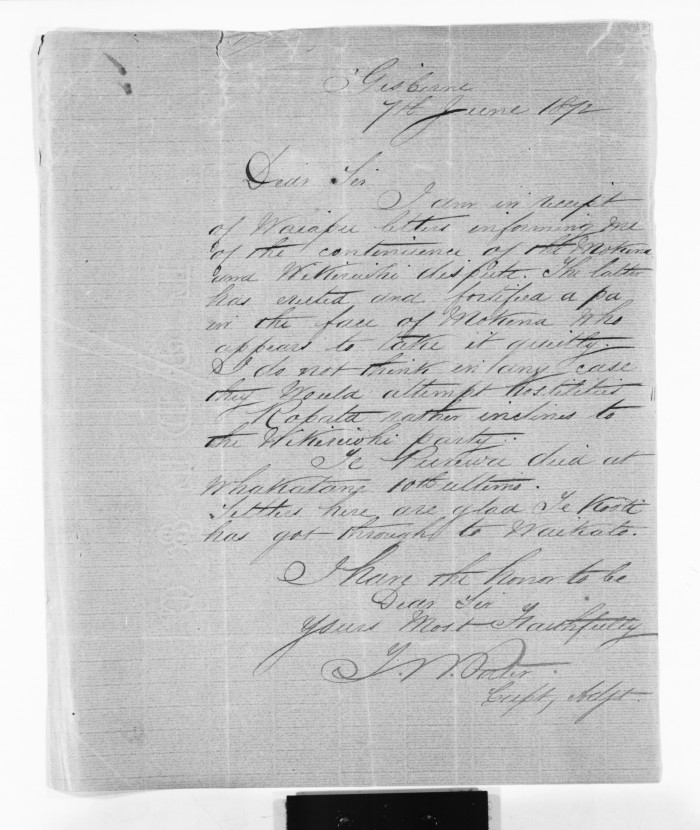 Gisborne
7th June 1872
Dear Sir
I am in receipt
of Waiapu letters informing me
of the continuence of the Mokena
and Wikiriwhi dispute. The latter
has erected and fortified a pa
in the face of Mokena who
appears to take it quietly.
I do not think in any case
they would attempt hostilities
Ropata rather inclines to
the Wikiriwhi party.
Te died at
Whakatane 10th ultimo.
Settlers here are glad Te Kooti
has got through to Waikato.
I have the honor to be
Dear Sir
Yours Most Faithfully
T. W. Porter
Capt, Adjt.